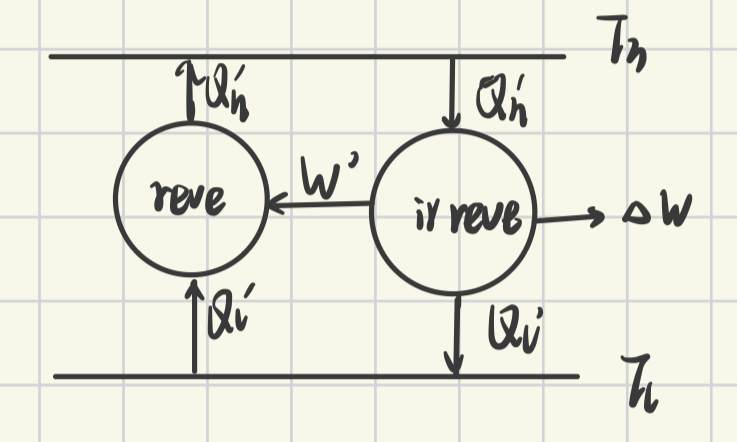 Th
Qh'
Qh'
reve
W'
irreve
ΔW
QL'
QL'
TL